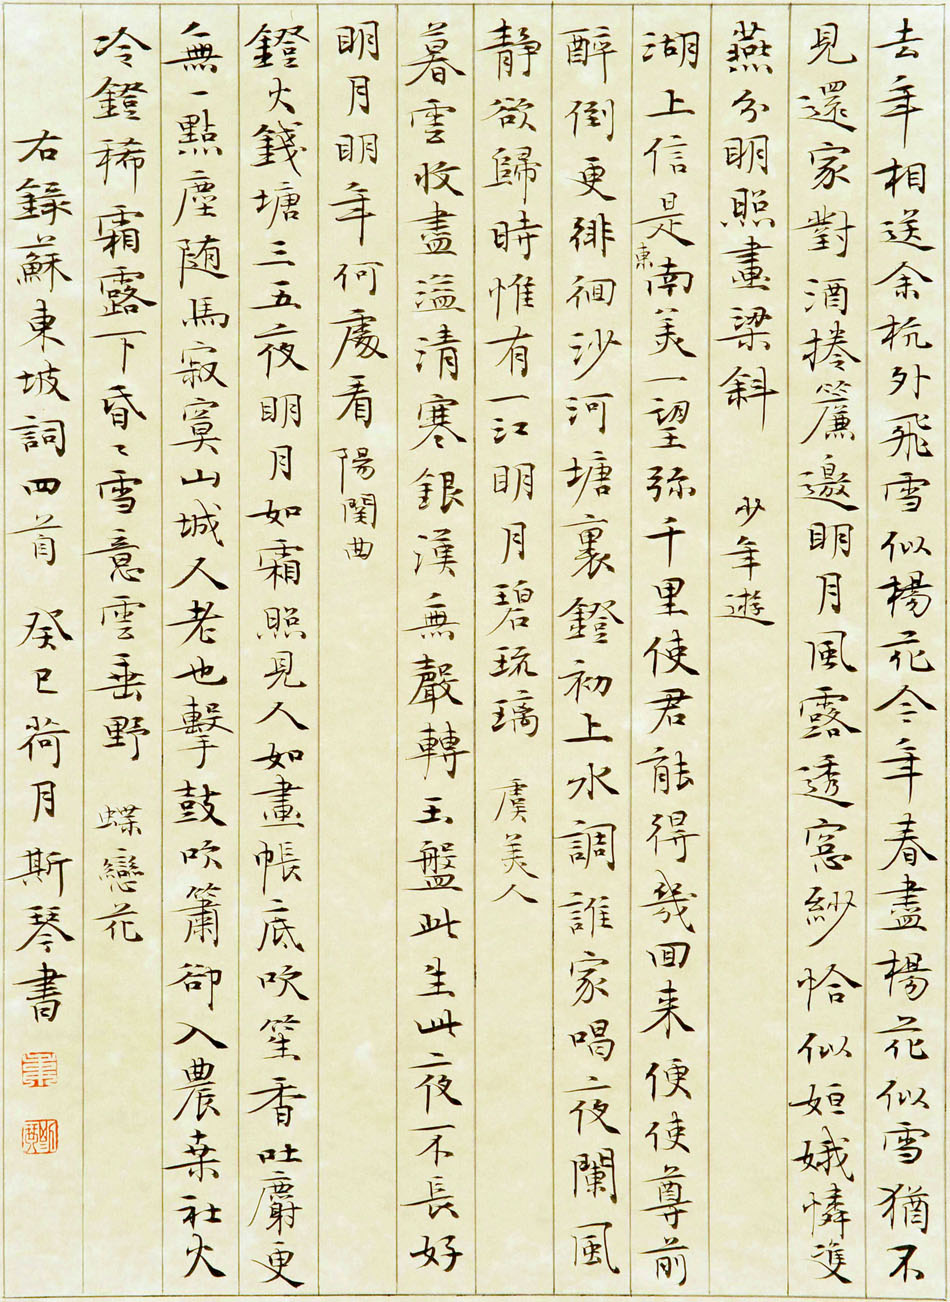 去年相送余杭外飛雪似楊花今年春盡楊花似雪猶不
見還家對酒捲簾邀明月風露透窓紗恰似姮娥憐雙
燕分明照畫梁斜 少年遊
湖上信是東南美一望弥千里使君能得幾回来便使尊前
醉倒更徘徊沙河塘裏鐙初上水調誰家唱夜闌風
静欲歸時惟有一江明月碧琉璃 虞美人
暮雲收盡溢清寒銀漢無聲轉玉盤此生此夜不長好
明月明年何處看 陽關曲
鐙火錢塘三五夜明月如霜照見人如畫帳底吹笙香吐麝更
無一點塵随馬寂寞山城人老也擊鼓吹簫卻入農桒社火
冷鐙稀霜露下昏〻雪意雲垂野 蝶戀花
右錄蘇東坡詞四首 癸巳荷月斯琴書